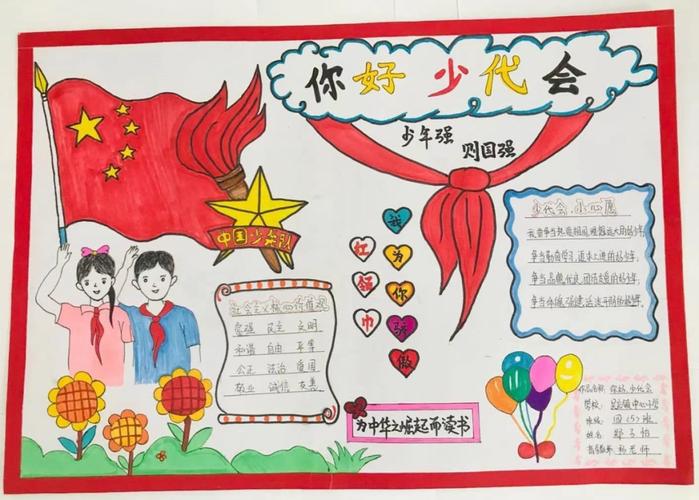 你好 少代会
少年强
则国强
中国少先队
红领巾
我为你骄傲
少代会,小心愿
我要争当热爱祖国,理想远大的好少年,
争当勤奋学习,追求上进的好少年,
争当品德优良,团结友爱的好少年,
争当体魄强健,活泼开朗的好少年.
社会主义核心价值观
富强 民主 文明
和谐 自由 平等
公正 法治 爱国
敬业 诚信 友善
为中华之崛起而读书
作品名称: 你好,少代会
学校: 镇中心小学
班级: 四(5)班
姓名
老师